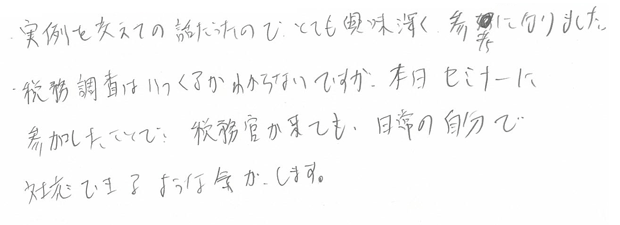 ・実例を交えての話だったので、とても興味深く、参考になりました。
・税務調査はいつくるかわからないですが、本日セミナーに
参加したことで、税務官が来ても、日常の自分で
対応できるような気がします。